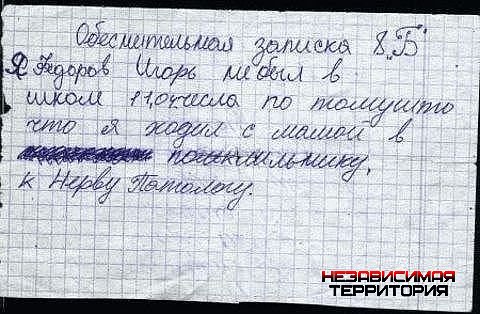 Обеснительная записка 8 „Б"
Я Федоров Игорь не был в
школ 11,04 числа по томушто
что я ходил с мамой в
к Нерву Патологу.
НЕЗАВИСИМАЯ
ТЕРРИТОРИЯ